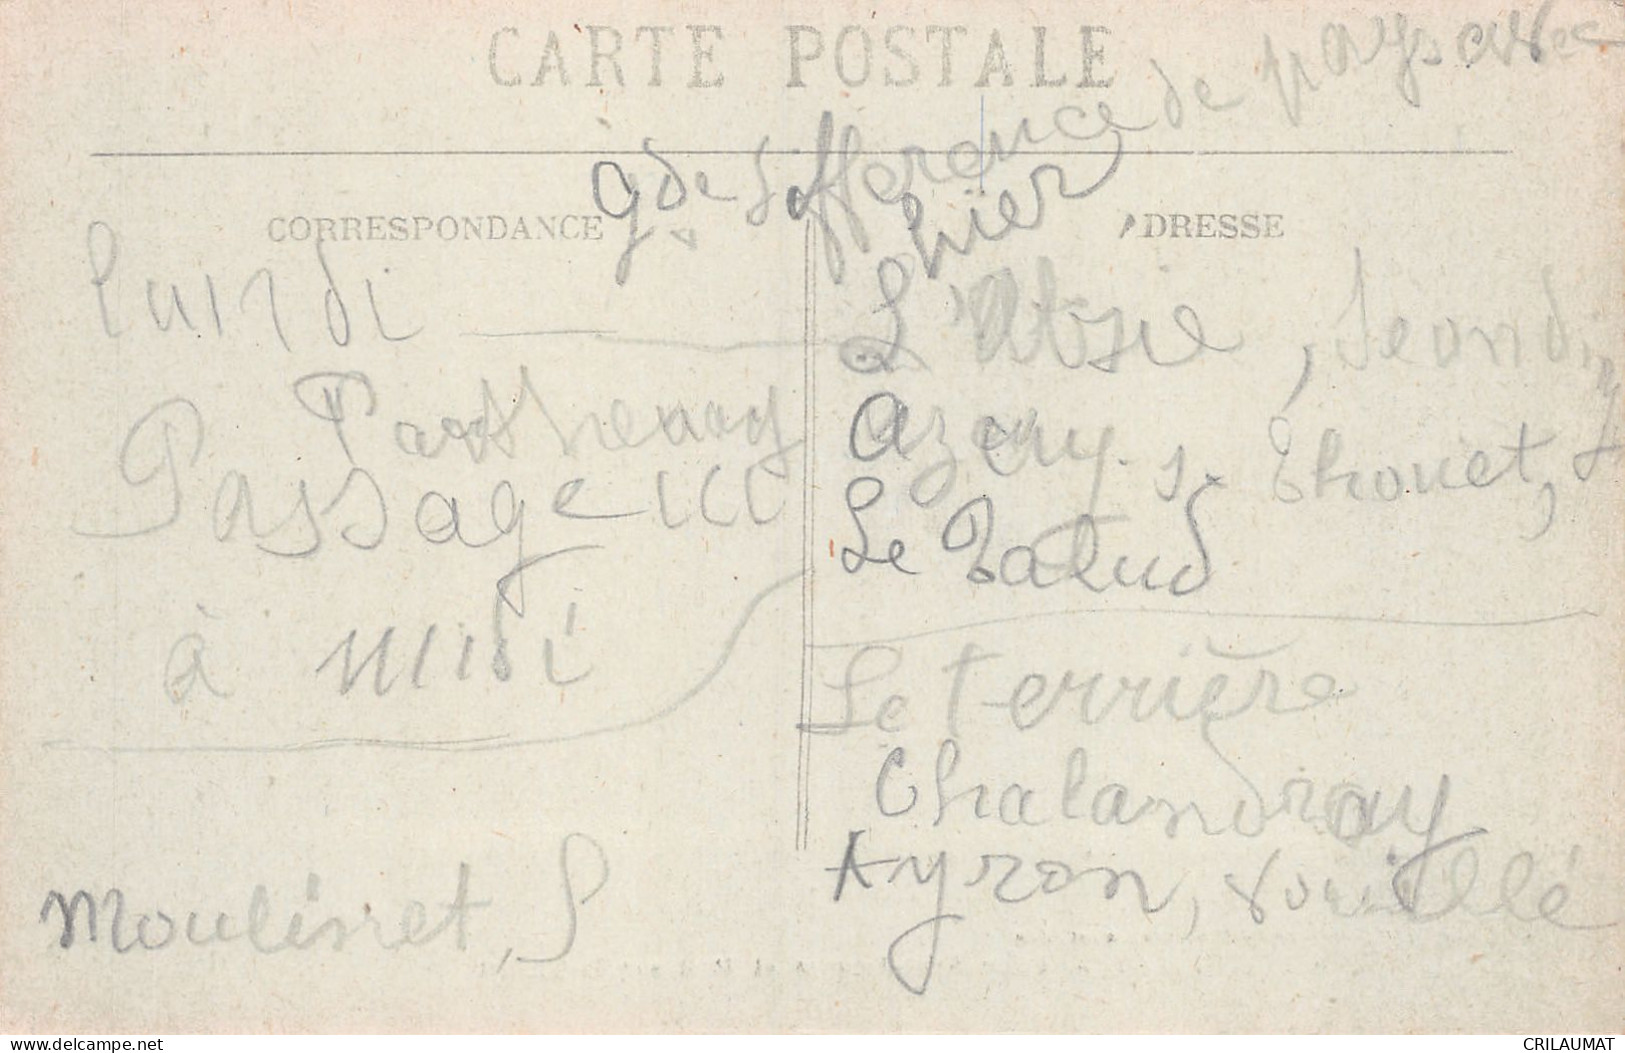 CARTE POSTALE
gde différence de pays avec
hier
CORRESPONDANCE
ADRESSE
Lundi
L'Absie, Secondigny
Parthenay
Azay. s. Thouet,
Passage
Le Talud
à midi
Le Ferrière
Chalandray
Ayron, Vouillé
Moulinet, S
CRILAUMAT
delcampe.net